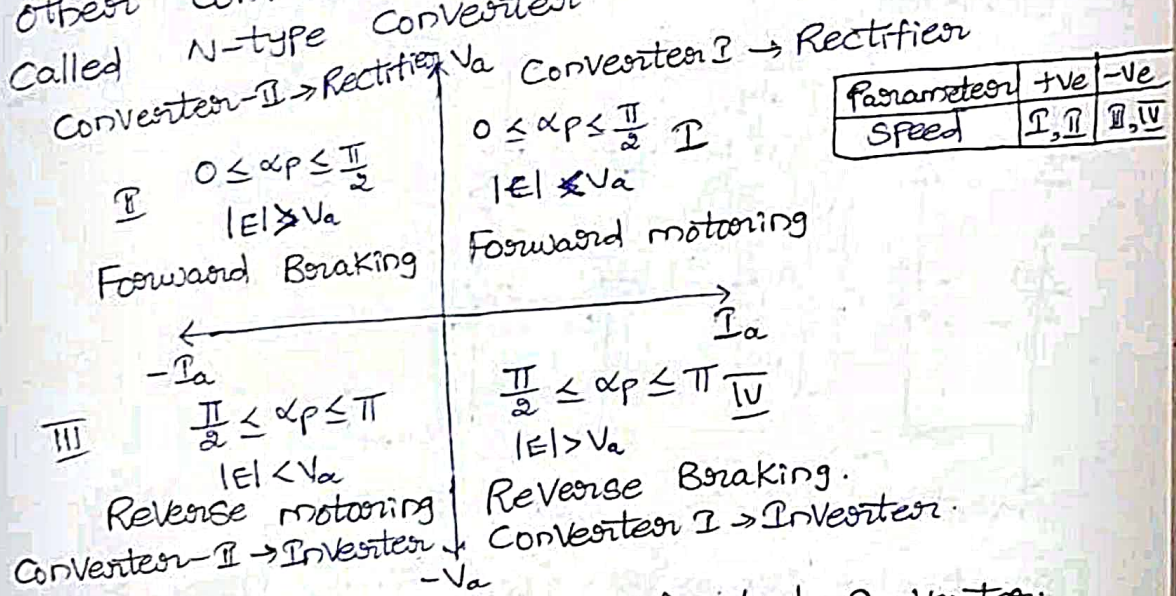 other
Called N-type Converter
Converter-II → Rectifier Va Converter I → Rectifier
Parameter +ve -ve
Speed I,II III,IV
0 ≤ αp ≤ π/2 I
|E| < Va
Forward motoring
II 0 ≤ αp ≤ π/2
|E| > Va
Forward Braking
-Ia
Ia
III π/2 ≤ αp ≤ π
|E| < Va
Reverse motoring
Converter-II → Inverter
π/2 ≤ αp ≤ π IV
|E| > Va
Reverse Braking.
Converter I → Inverter.
-Va